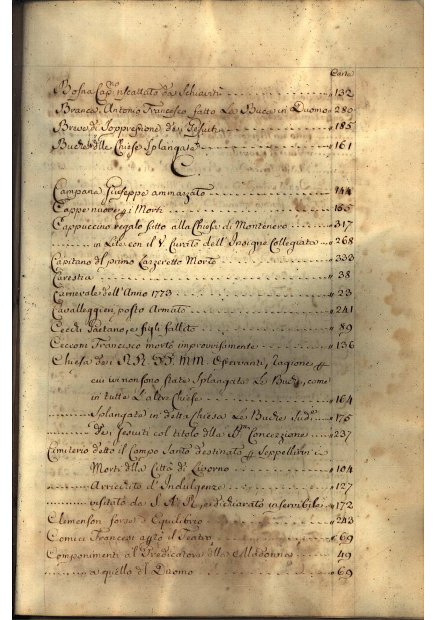 Carte
Bosna Cap.no riscattato da Schiavitù 132
Branca Antonio Francesco fatto La Buca in Duomo 280
Breve di Soppressione dei Gesuiti 185
Buche delle Chiese Splangate 161
C
Campana Giuseppe ammazzato 144
Cappe nuove p i Morti 155
Cappuccino regalo fatto alla Chiesa di Montenero 317
in Lite con il V. Curato dell'Insigne Collegiata 268
Capitano del primo Lazzeretto Morto 333
Carestia 38
Carnevale dell'Anno 1773 23
Cavalleggieri, posto Armato 241
Cecchi Gaetano, e figli falliti 89
Cecconi Francesco morto improvvisamente 136
Chiesa dei RR. PP. MM. Osservanti, Ragione p
cui ivi non sono state Splangate Le Buche, come
in tutte L'altre Chiese 164
Splangate in detta Chiesa Le Buche Sud.e 175
dei Gesuiti col titolo della Concezione 237
Cimiterio detto il Campo Santo destinato p Seppellirvi i
Morti della Città di Livorno 104
Arricchito d'Indulgenze 127
visitato da S. A. R., e dichiarato inservibile 172
Clemenson forze d'Equilibrio 243
Comici Francesi al Teatro 69
Componimenti al Predicatore della Madonna 49
a quello del Duomo 69